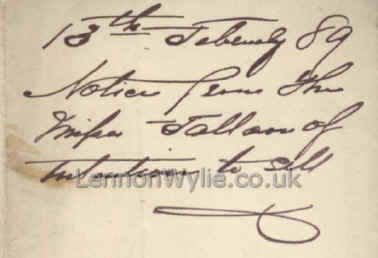 13th Febeudy 89
Notice from the
Misses Tallan of
Intention to sell
LennonWylie.co.uk